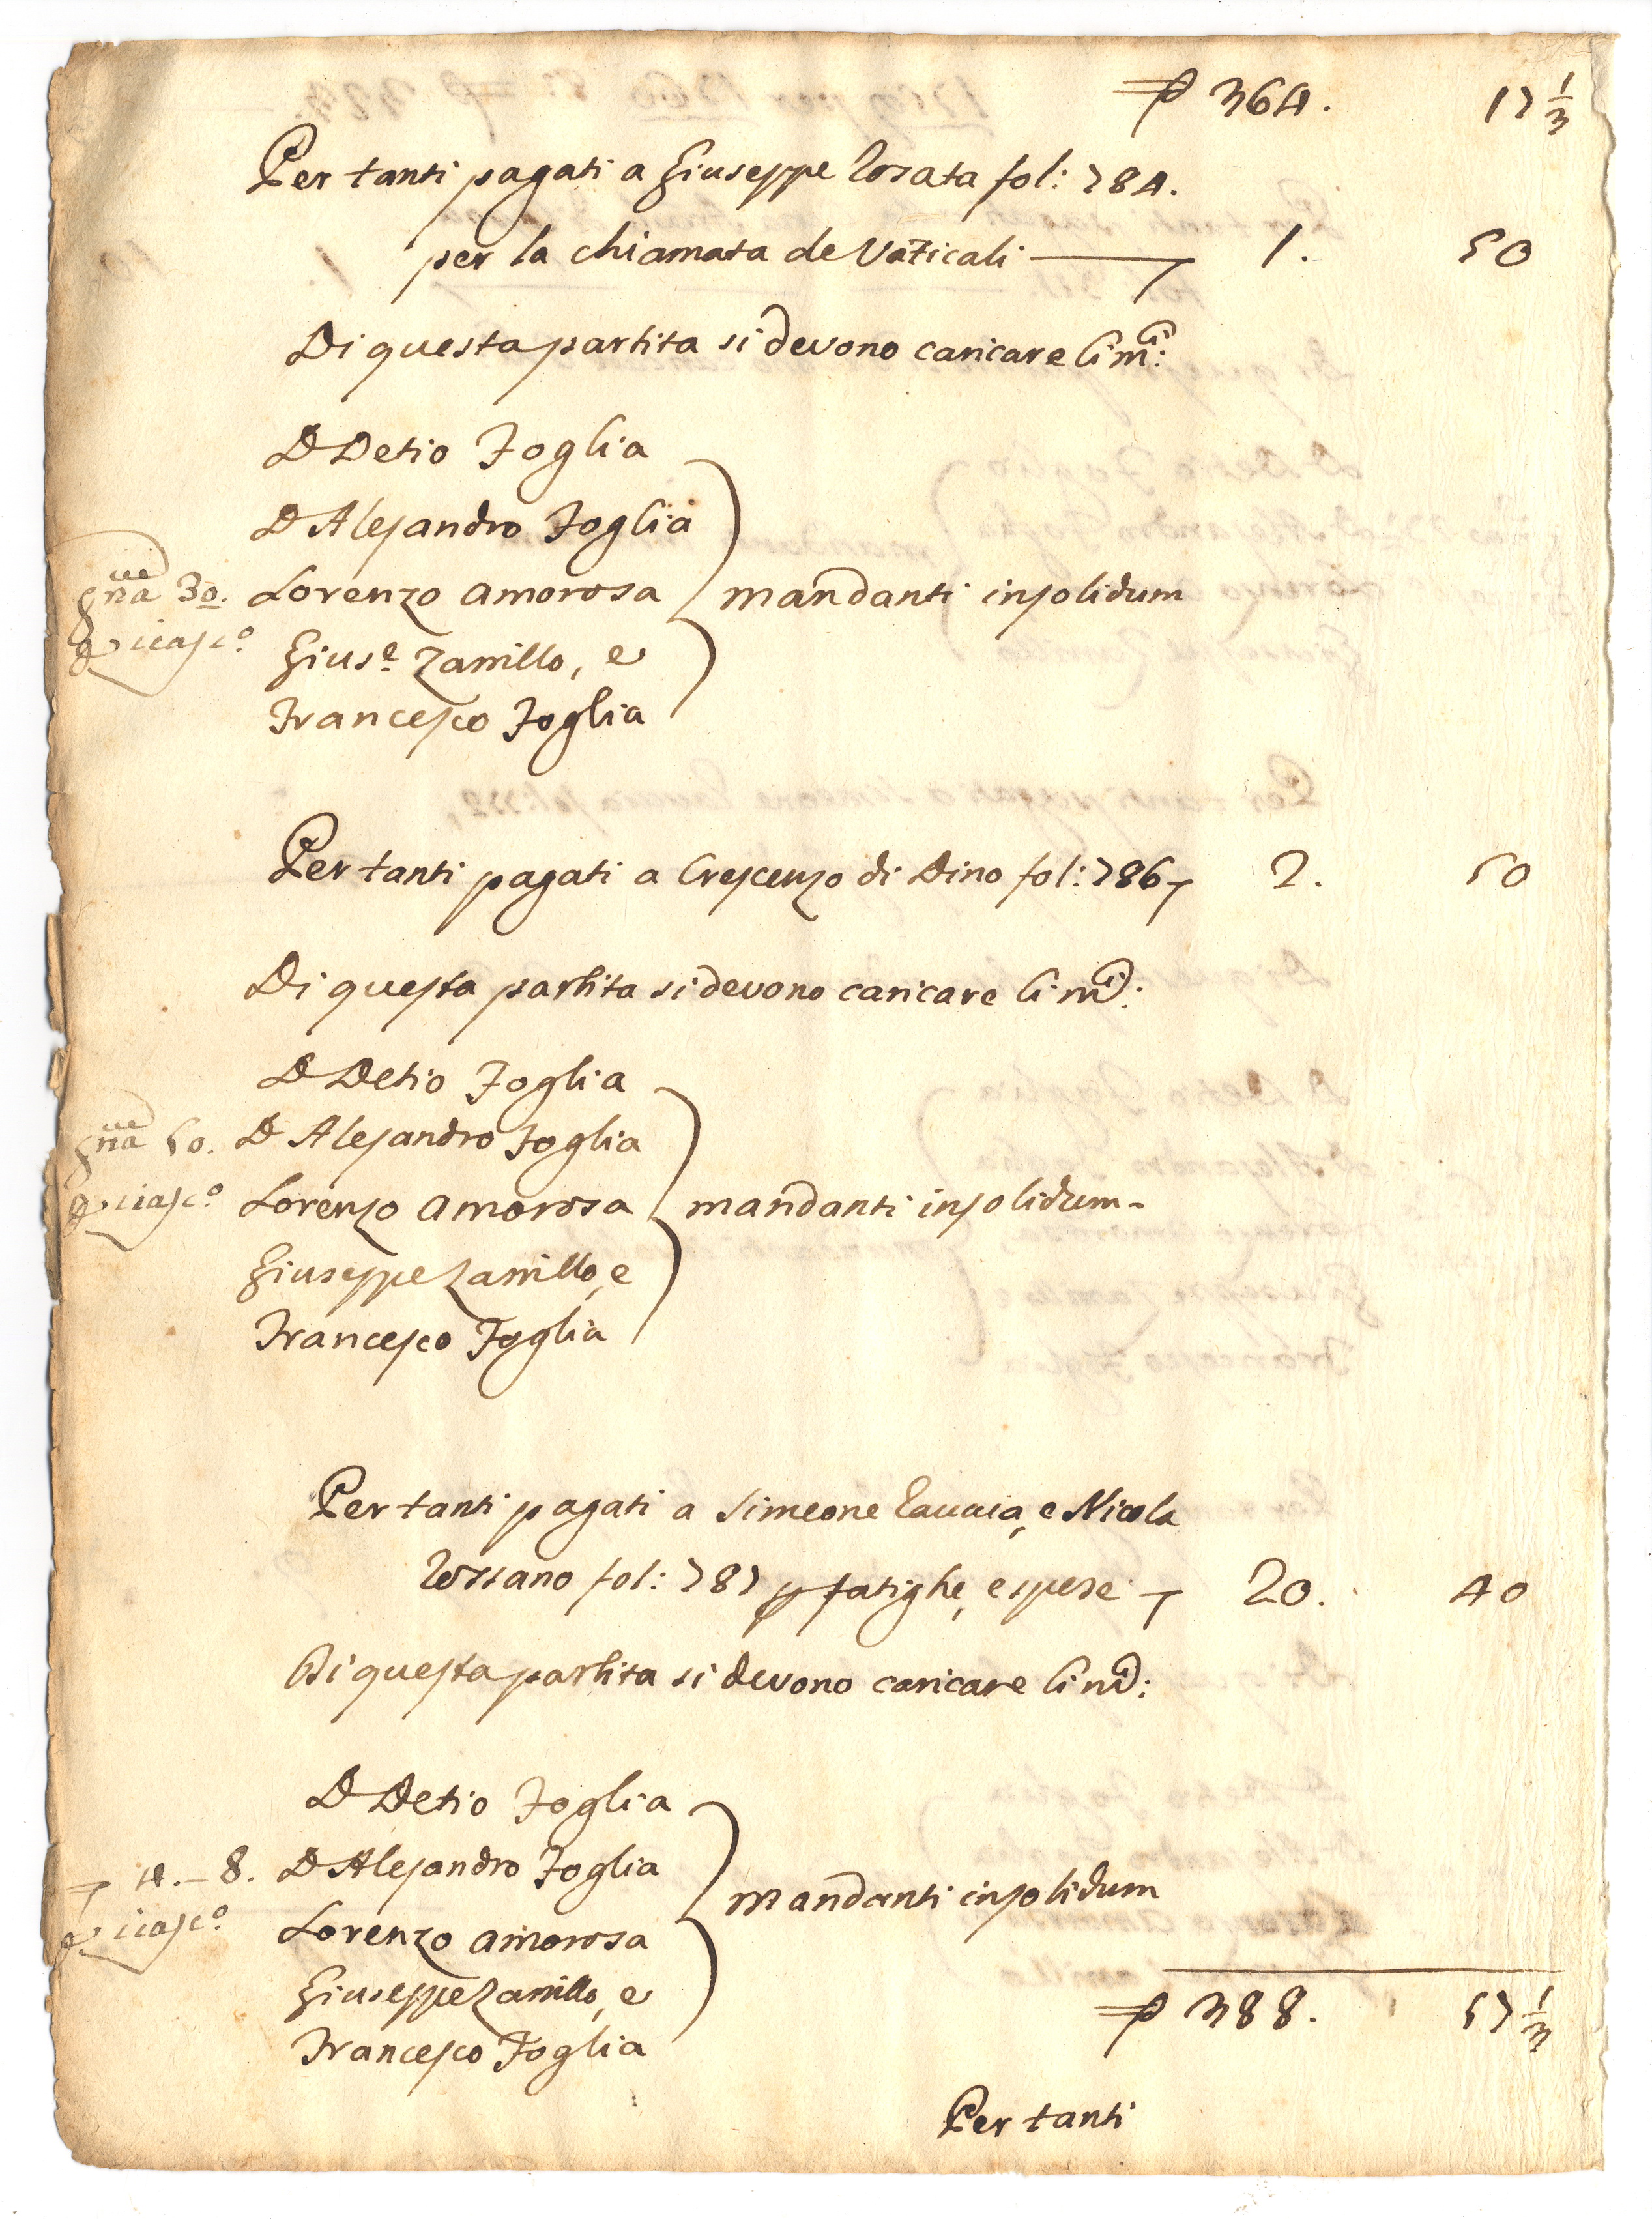 364. 17 1/3
Per tanti pagati a Giuseppe Rosata fol: 784.
per la chiamata de Vaticali — 1. 50
Di questa partita si devono caricare li mi:
D Detio Foglia
D Alesandro Foglia
gna 30. Lorenzo Amorosa mandanti insolidum
ciasco. Giuse. Zanillo, e
Francesco Foglia
Per tanti pagati a Crescenzo di Dino fol: 786 2. 50
Di questa partita si devono caricare li mi:
D Detio Foglia
gna 50. D Alesandro Foglia
ciasco. Lorenzo Amorosa mandanti insolidum-
Giuseppe Zanillo, e
Francesco Foglia
Per tanti pagati a Simeone, e Nicola
Rossano fol: 787 p fatighe, e spese 20. 40
Di questa partita si devono caricare li mi:
D Detio Foglia
4.-8. D Alesandro Foglia
mandanti insolidum
ciasco. Lorenzo Amorosa
Giuseppe Zanillo, e
388. 57 1/3
Francesco Foglia
Per tanti